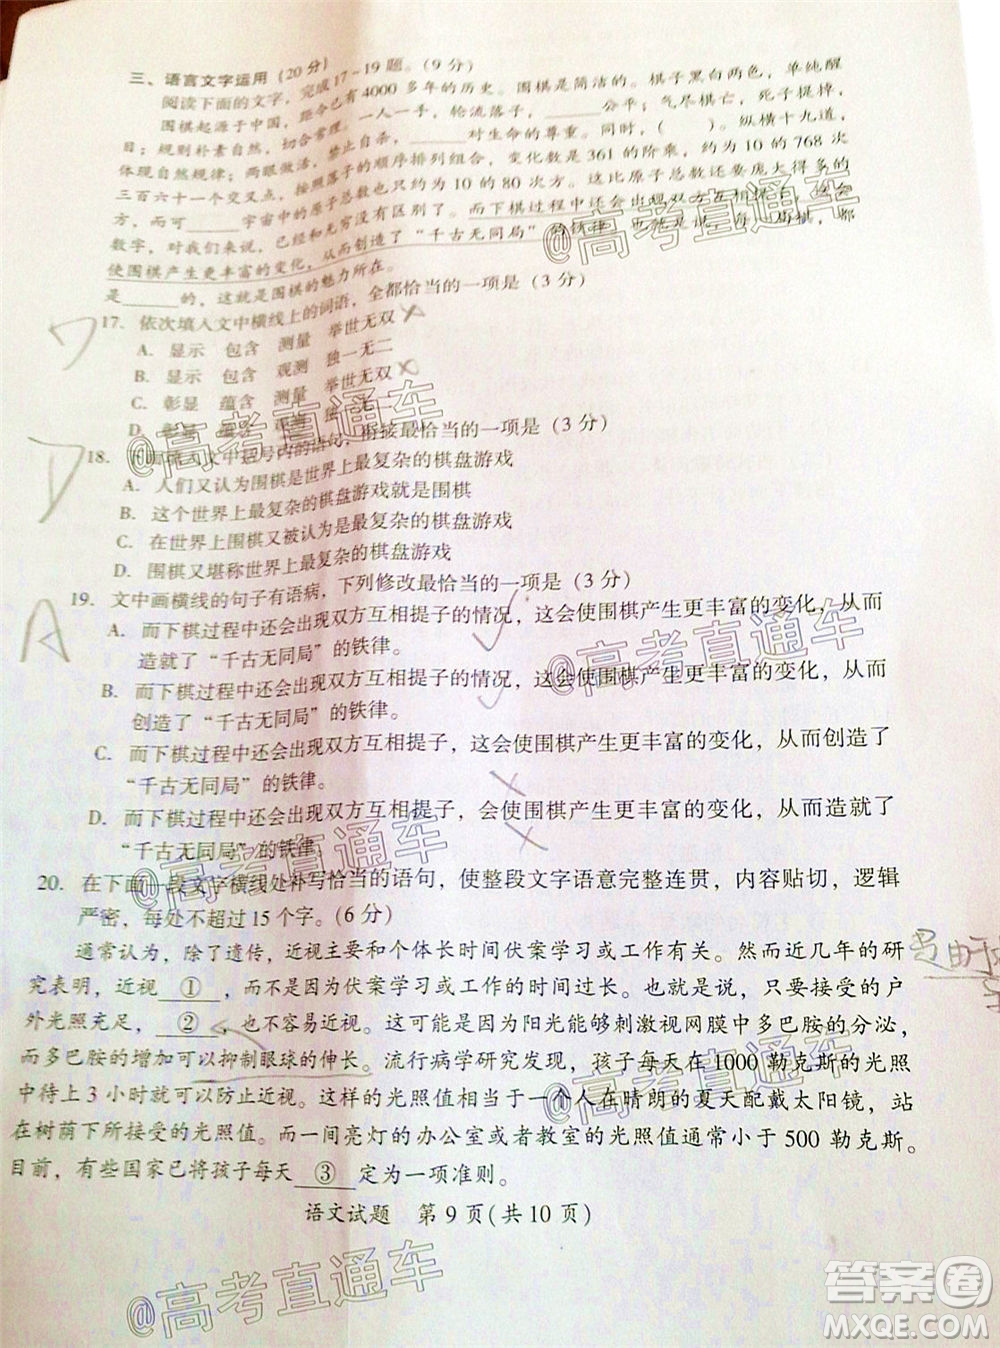 三、语言文字运用(20分)
阅读下面的文字，完成17-19题。(9分)
围棋起源于中国，距今已有4000多年的历史。围棋是简洁的。棋子黑白两色，单纯醒
目；规则朴素自然，切合常理。一人一手，轮流落子，______公平；气尽棋亡，死子提掉，
体现自然规律；两眼做活，禁止自杀，______对生命的尊重。同时，(　　)。纵横十九道，
三百六十一个交叉点，按照落子的顺序排列组合，变化数是361的阶乘，约为10的768次
方，而可______宇宙中的原子总数大约为10的80次方。这比原子总数还要庞大得多的
数字，对我们来说，已经和无穷没有区别了。而下棋过程中还会出现双方互相提子，
使围棋产生更丰富的变化，从而创造了“千古无同局”的铁律。也就是说，每一局棋，都
是______的，这就是围棋的魅力所在。
17. 依次填入文中横线上的词语，全都恰当的一项是(3分)
A. 显示 包含 测量 举世无双
B. 显示 包含 观测 独一无二
C. 彰显 蕴含 测量 举世无双
D. 彰显 蕴含 观测 独一无二
18. 下列填入文中括号内的语句，衔接最恰当的一项是(3分)
A. 人们又认为围棋是世界上最复杂的棋盘游戏
B. 这个世界上最复杂的棋盘游戏就是围棋
C. 在世界上围棋又被认为是最复杂的棋盘游戏
D. 围棋又堪称世界上最复杂的棋盘游戏
19. 文中画横线的句子有语病，下列修改最恰当的一项是(3分)
A. 而下棋过程中还会出现双方互相提子的情况，这会使围棋产生更丰富的变化，从而
造就了“千古无同局”的铁律。
B. 而下棋过程中还会出现双方互相提子的情况，这会使围棋产生更丰富的变化，从而
创造了“千古无同局”的铁律。
C. 而下棋过程中还会出现双方互相提子，这会使围棋产生更丰富的变化，从而创造了
“千古无同局”的铁律。
D. 而下棋过程中还会出现双方互相提子，会使围棋产生更丰富的变化，从而造就了
“千古无同局”的铁律。
20. 在下面一段文字横线处补写恰当的语句，使整段文字语意完整连贯，内容贴切，逻辑
严密，每处不超过15个字。(6分)
通常认为，除了遗传，近视主要和个体长时间伏案学习或工作有关。然而近几年的研
究表明，近视 ① ，而不是因为伏案学习或工作的时间过长。也就是说，只要接受的户
外光照充足， ② ，也不容易近视。这可能是因为阳光能够刺激视网膜中多巴胺的分泌，
而多巴胺的增加可以抑制眼球的伸长。流行病学研究发现，孩子每天在1000勒克斯的光照
中待上3小时就可以防止近视。这样的光照值相当于一个人在晴朗的夏天配戴太阳镜，站
在树荫下所接受的光照值。而一间亮灯的办公室或者教室的光照值通常小于500勒克斯。
目前，有些国家已将孩子每天 ③ 定为一项准则。
语文试题 第9页(共10页)
D
A
@高考直通车
@高考直通车
@高考直通车
@高考直通车
@高考直通车
@高考直通车
答案卷
MXQE.COM